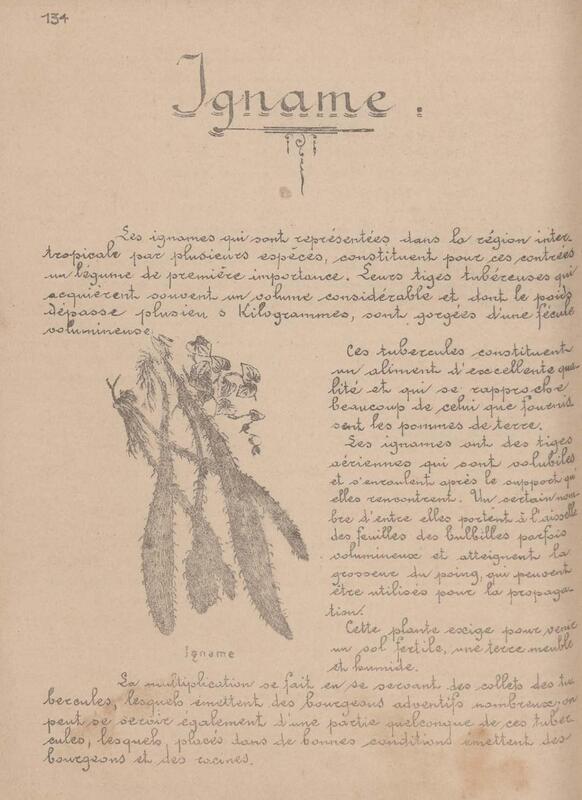 134
Igname.
Les ignames qui sont représentées dans la région inter-
tropicale par plusieurs espèces, constituent pour ces contrées
un légume de première importance. Leurs tiges tubéreuses qui
acquièrent souvent un volume considérable et dont le poids
dépasse plusieu s Kilogrammes, sont gorgées d'une fécule
volumineuse.
Ces tubercules constituent
un aliment d'excellente qua-
lité et qui se rapproche
beaucoup de celui que fournis-
sent les pommes de terre.
Les ignames ont des tiges
aériennes qui sont volubiles
et s'enroulent après le support qu'
elles rencontrent. Un certain nom-
bre d'entre elles portent à l'aisselle
des feuilles des bulbilles parfois
volumineux et atteignent la
grosseur du poing, qui peuvent
être utilisés pour la propaga-
tion.
Cette plante exige pour venir
un sol fertile, une terre meuble
et humide.
Igname
La multiplication se fait en se servant des collets des tu
bercules, lesquels émettent des bourgeons adventifs nombreux; on
peut se servir également d'une partie quelconque de ces tuber
cules, lesquels, placés dans de bonnes conditions émettent des
bourgeons et des racines.